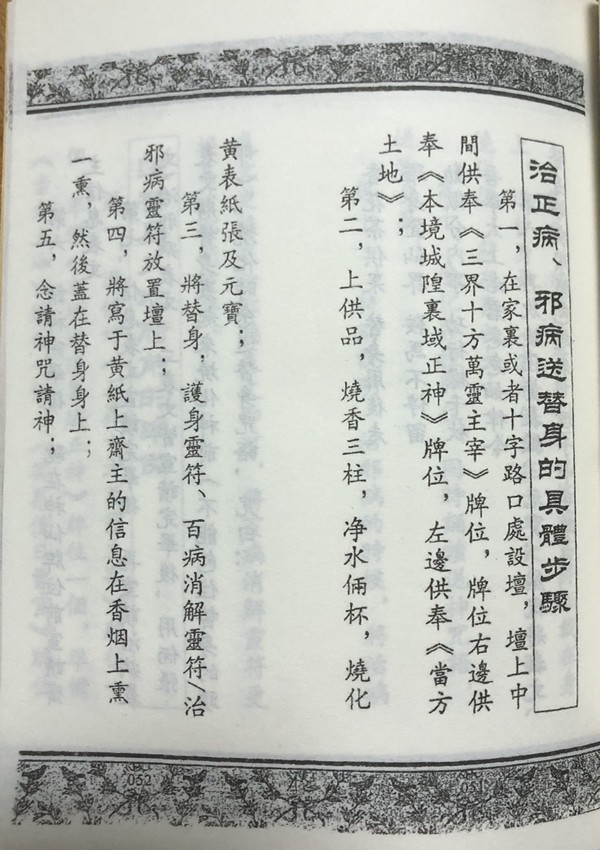 治正病、邪病送替身的具體步驟
第一，在家裏或者十字路口處設壇，壇上中
間供奉《三界十方萬靈主宰》牌位，牌位右邊供
奉《本境城隍裏域正神》牌位，左邊供奉《當方
土地》；
第二，上供品，燒香三柱，净水倆杯，燒化
黄表紙張及元寶；
第三，將替身，護身靈符、百病消解靈符/治
邪病靈符放置壇上；
第四，將寫于黄紙上齋主的信息在香烟上熏
一熏，然後蓋在替身身上；
第五，念請神咒請神；
051
052